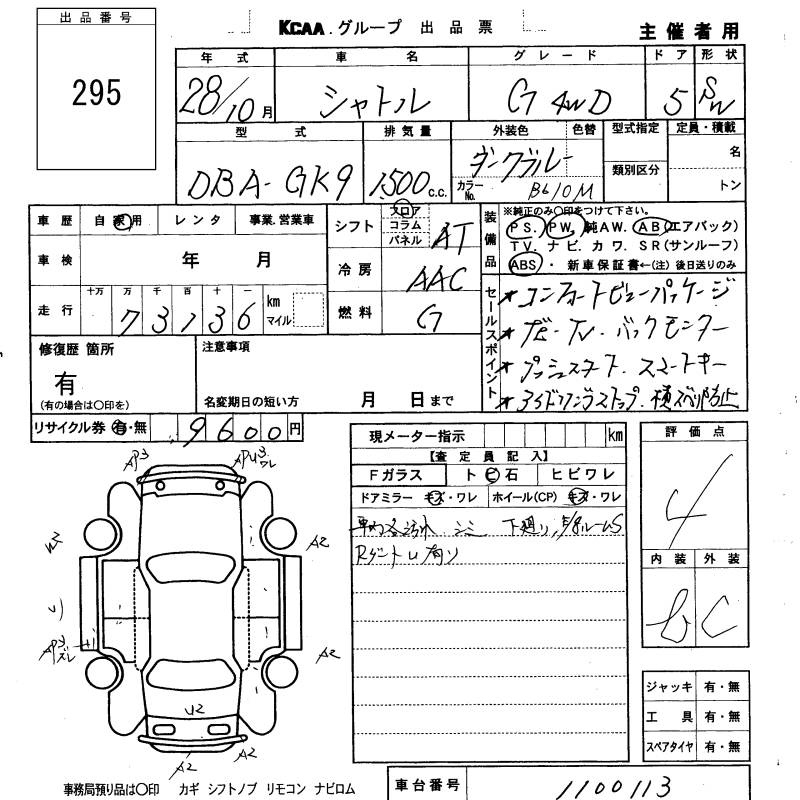 出品番号
295
KCAA.グループ 出品票
主催者用
年式 車名 グレード ドア 形状
28/10月 シャトル G 4WD 5 SW
型式 排気量 外装色 色替 型式指定 定員・積載
DBA-GK9 1,500c.c. ダークブルー 名
類別区分
カラーNo. B610M トン
車歴 自家用 レンタ 事業.営業車
シフト フロア コラム パネル AT
装備品 ※純正のみ〇印をつけて下さい。
PS. PW. 純AW. AB(エアバック)
TV. ナビ. カワ. SR(サンルーフ)
ABS・ 新車保証書←(注)後日送りのみ
車検 年 月
冷房 AAC
走行 十万 万 千 百 十 一
73136 km マイル
燃料 G
セールスポイント
★コンフォートビューパッケージ
★ナビ・TV・バックモニター
★プッシュスタート.スマートキー
★アイドリングストップ.横スベリ防止
修復歴 箇所
有
(有の場合は〇印を)
注意事項
名変期日の短い方 月 日まで
リサイクル券 有・無 9600円
現メーター指示 km
【査定員記入】
Fガラス ト ビ 石 ヒビワレ
ドアミラー キズ・ワレ ホイール(CP) キズ・ワレ
車内汚れ シミ 下廻り,
評価点
4
内装 外装
b C
AP3 APU3ワレ
W2 A2
U
AP3ズレ A2
U2
A2 A2
ジャッキ 有・無
工具 有・無
スペアタイヤ 有・無
事務局預り品は〇印 カギ シフトノブ リモコン ナビロム
車台番号 1100113